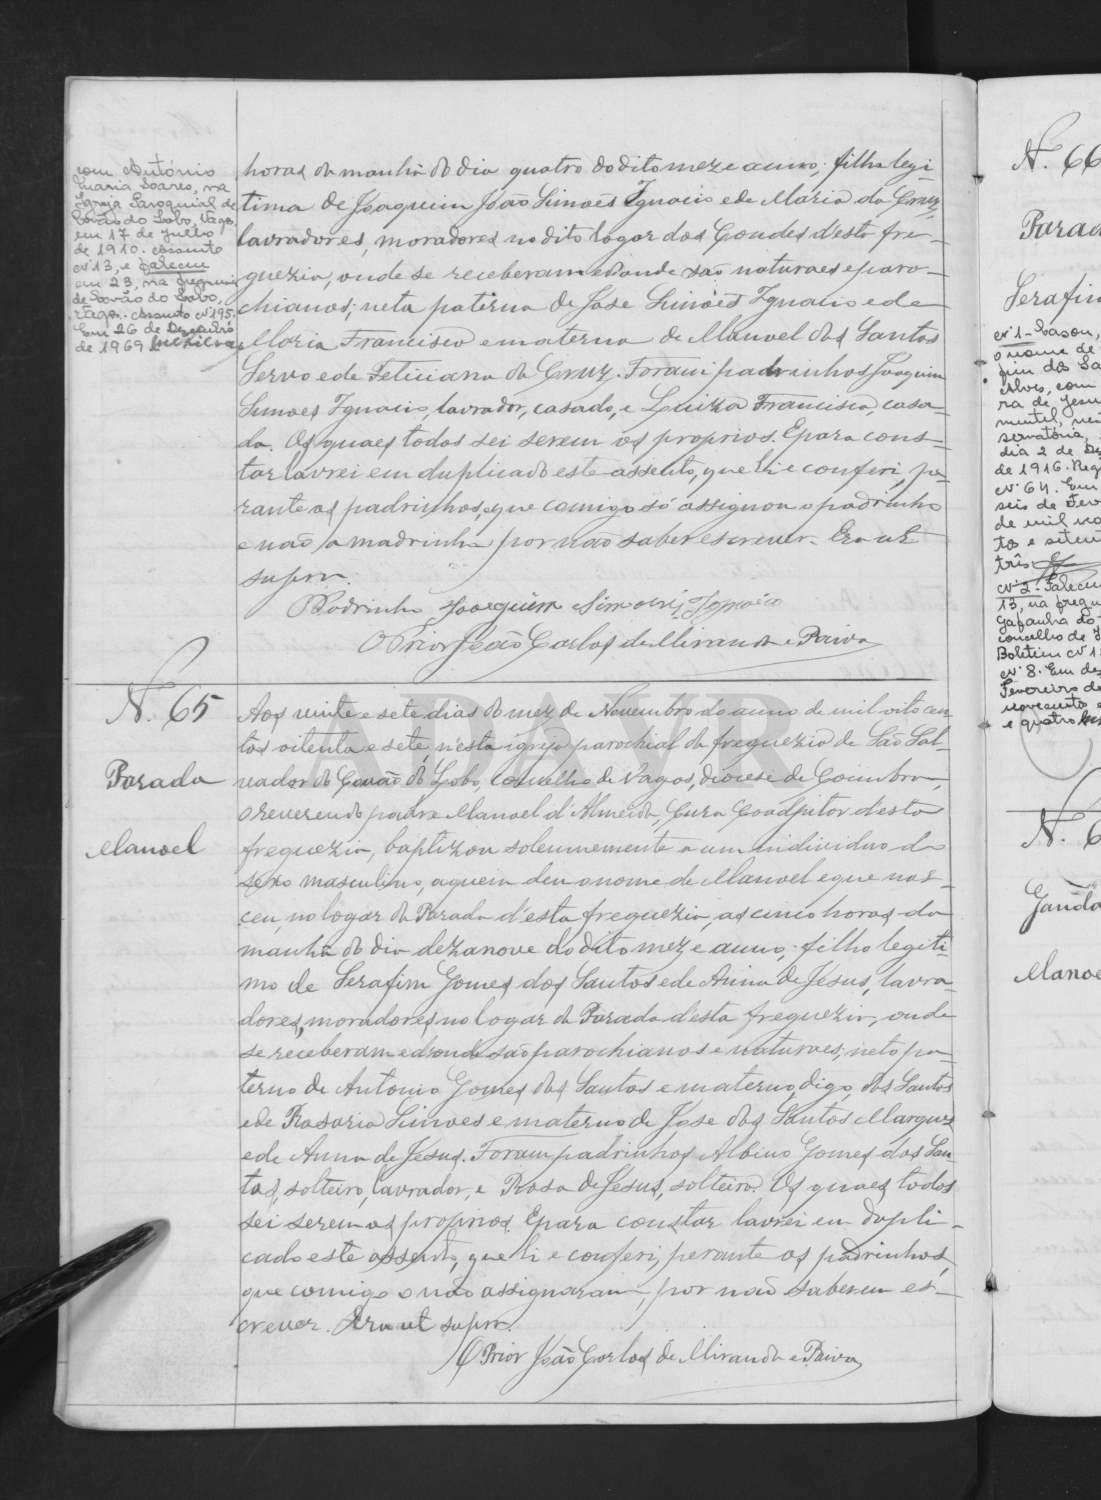 com António
Maria Soares, na
Igreja Paroquial de
Covão do Lobo, Vagos,
em 17 de Julho
de 1910. Assento
nº 13, e faleceu
em 23, na freguesia
de Covão do Lobo,
Vagos. Assento nº 195.
Em 26 de Dezembro
de 1969
horas da manhã do dia quatro do dito mez e anno; filha legi-
tima de Joaquim João Simões Ignacio e de Maria da Cruz,
lavradores, moradores no dito logar das Gondes d'esta fre-
guezia, onde se receberam e d'onde são naturaes e paro-
chianos; neta paterna de Jose Simões Ignacio e de
Maria Francisco e materna de Manoel dos Santos
Servo e de Feliciana da Cruz. Foram padrinhos Joaquim
Simoes Ignacio, lavrador, casado, e Luiza Francisca, casa-
da. Os quaes todos sei serem os proprios. E para cons-
tar lavrei em duplicado este assento, que li e conferi, pe-
rante os padrinhos, que comigo só assignou o padrinho
e não a madrinha por não saber escrever. Era ut
supra.
Padrinho Joaquim Simões Ignacio
O Prior João Carlos de Miranda e Paiva
N. 65
Parada
Manoel
Aos vinte e sete dias do mez de Novembro do anno de mil oito cen-
tos oitenta e sete n'esta igreja parochial da freguezia de São Sal-
vador do Covão do Lobo, concelho de Vagos, diocese de Coimbra,
o reverendo padre Manoel d'Almeida, Cura Coadjutor d'esta
freguezia, baptizou solemnemente a um individuo do
sexo masculino, a quem deu o nome de Manoel e que nas-
ceu, no logar da Parada d'esta freguezia, as cinco horas da
manhã do dia dezanove do dito mez e anno; filho legiti-
mo de Serafim Gomes dos Santos e de Anna de Jesus, lavra-
dores, moradores no logar da Parada d'esta freguezia, onde
se receberam e d'onde são parochianos e naturaes; neto pa-
terno de Antonio Gomes dos Santos e materno, digo, dos Santos
e de Rosaria Simoes e materno de Jose dos Santos Marques
e de Anna de Jesus. Foram padrinhos Albino Gomes dos San-
tos, solteiro, lavrador, e Rosa de Jesus, solteira. Os quaes todos
sei serem os proprios. E para constar lavrei em dupli-
cado este assento, que li e conferi, perante os padrinhos,
que comigo o não assignaram, por não saberem es-
crever. Era ut supra.
O Prior João Carlos de Miranda e Paiva
ADAVR
N. 66
Parad
Serafim
nº 1 - Casou,
o nome de
fim dos Sa
Alves, com
ra de Jesu
mentel, na
servatória,
dia 2 de De
de 1916. Reg
nº 64. Em
seis de Fev
de mil no
tos e seten
três.
nº 2 - Faleceu
13, na fregu
Gafanha do
concelho de
Boletim nº 1
nº 8. Em de
Fevereiro de
novecento
e quatro
N. 6
Ganda
Manoe